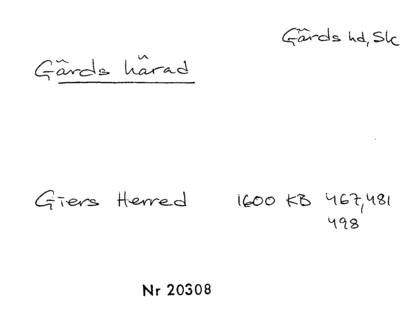 Gärds hd, Sk
Gärds härad
Giers Herred 1600 KB 467,481
498
Nr 20308